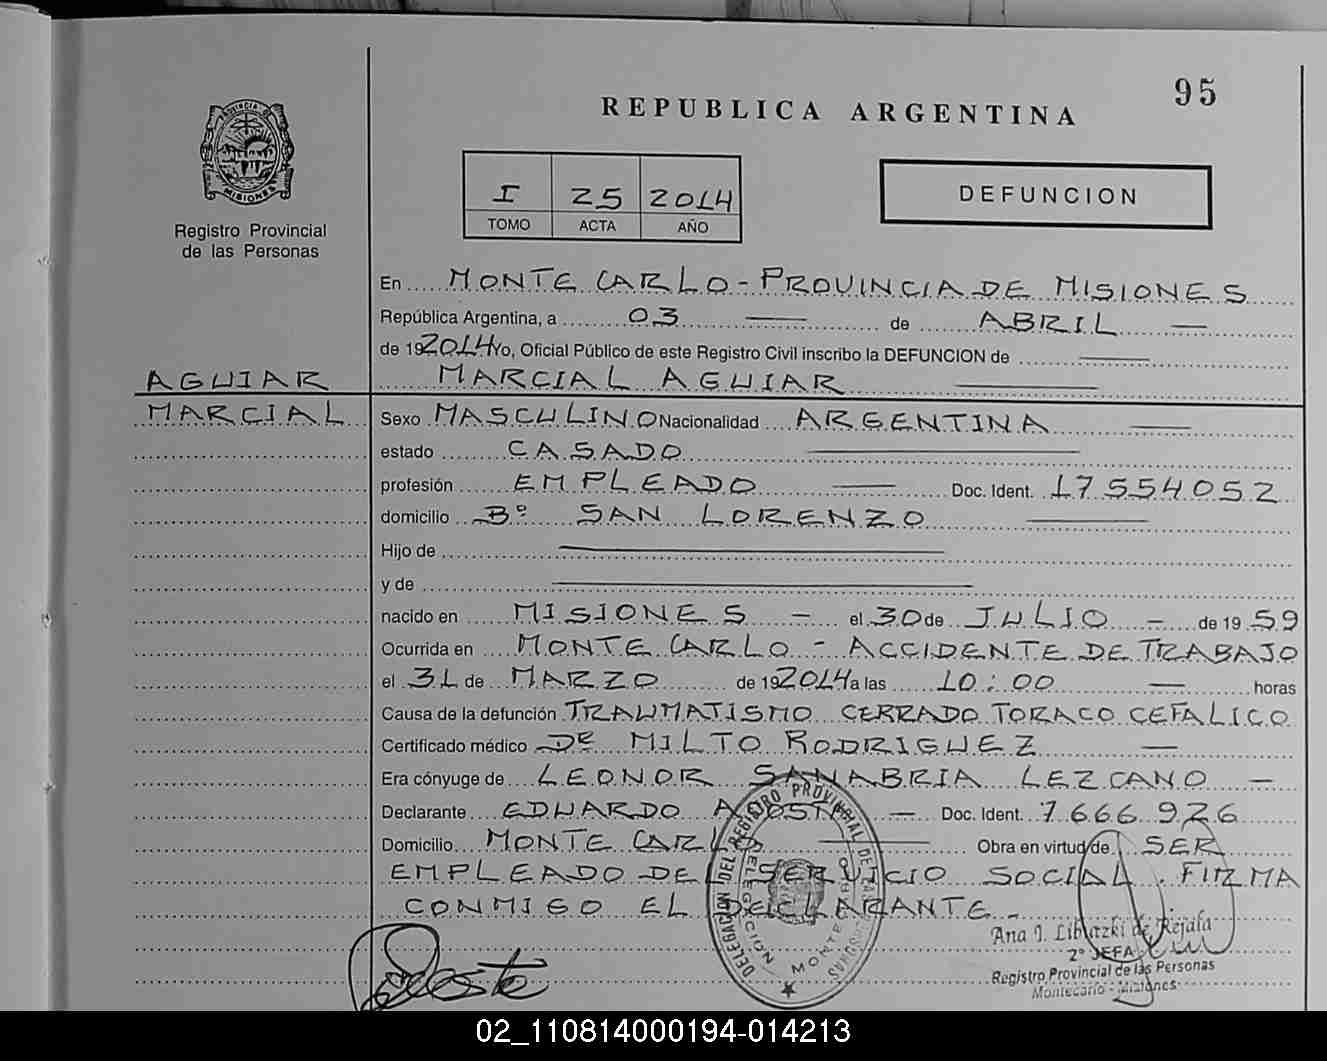 95
REPUBLICA ARGENTINA
PROVINCIA DE
MISIONES
Registro Provincial
de las Personas
I 25 2014
TOMO ACTA AÑO
DEFUNCION
En MONTE CARLO - PROVINCIA DE MISIONES
República Argentina, a 03 de ABRIL
de 192014 Yo, Oficial Público de este Registro Civil inscribo la DEFUNCION de
AGUIAR MARCIAL AGUIAR
MARCIAL Sexo MASCULINO Nacionalidad ARGENTINA
estado CASADO
profesión EMPLEADO Doc. Ident. 17554052
domicilio Bº SAN LORENZO
Hijo de
y de
nacido en MISIONES - el 30 de JULIO - de 1959
Ocurrida en MONTE CARLO - ACCIDENTE DE TRABAJO
el 31 de MARZO de 192014 a las 10:00 horas
Causa de la defunción TRAUMATISMO CERRADO TORACO CEFALICO
Certificado médico MILTO RODRIGUEZ
Era cónyuge de LEONOR SANABRIA LEZCANO
Declarante EDUARDO ACOSTA Doc. Ident. 7.666.926
Domicilio MONTE CARLO Obra en virtud de SER
EMPLEADO DEL SERVICIO SOCIAL. FIRMA
CONMIGO EL DECLARANTE.
DELEGACION DEL REGISTRO PROVINCIAL DE LAS PERSONAS
DELEGACION MONTECARLO
Acosta
Ana I. de Rejala
2º JEFA
Registro Provincial de las Personas
Montecarlo - Misiones
02_110814000194-014213